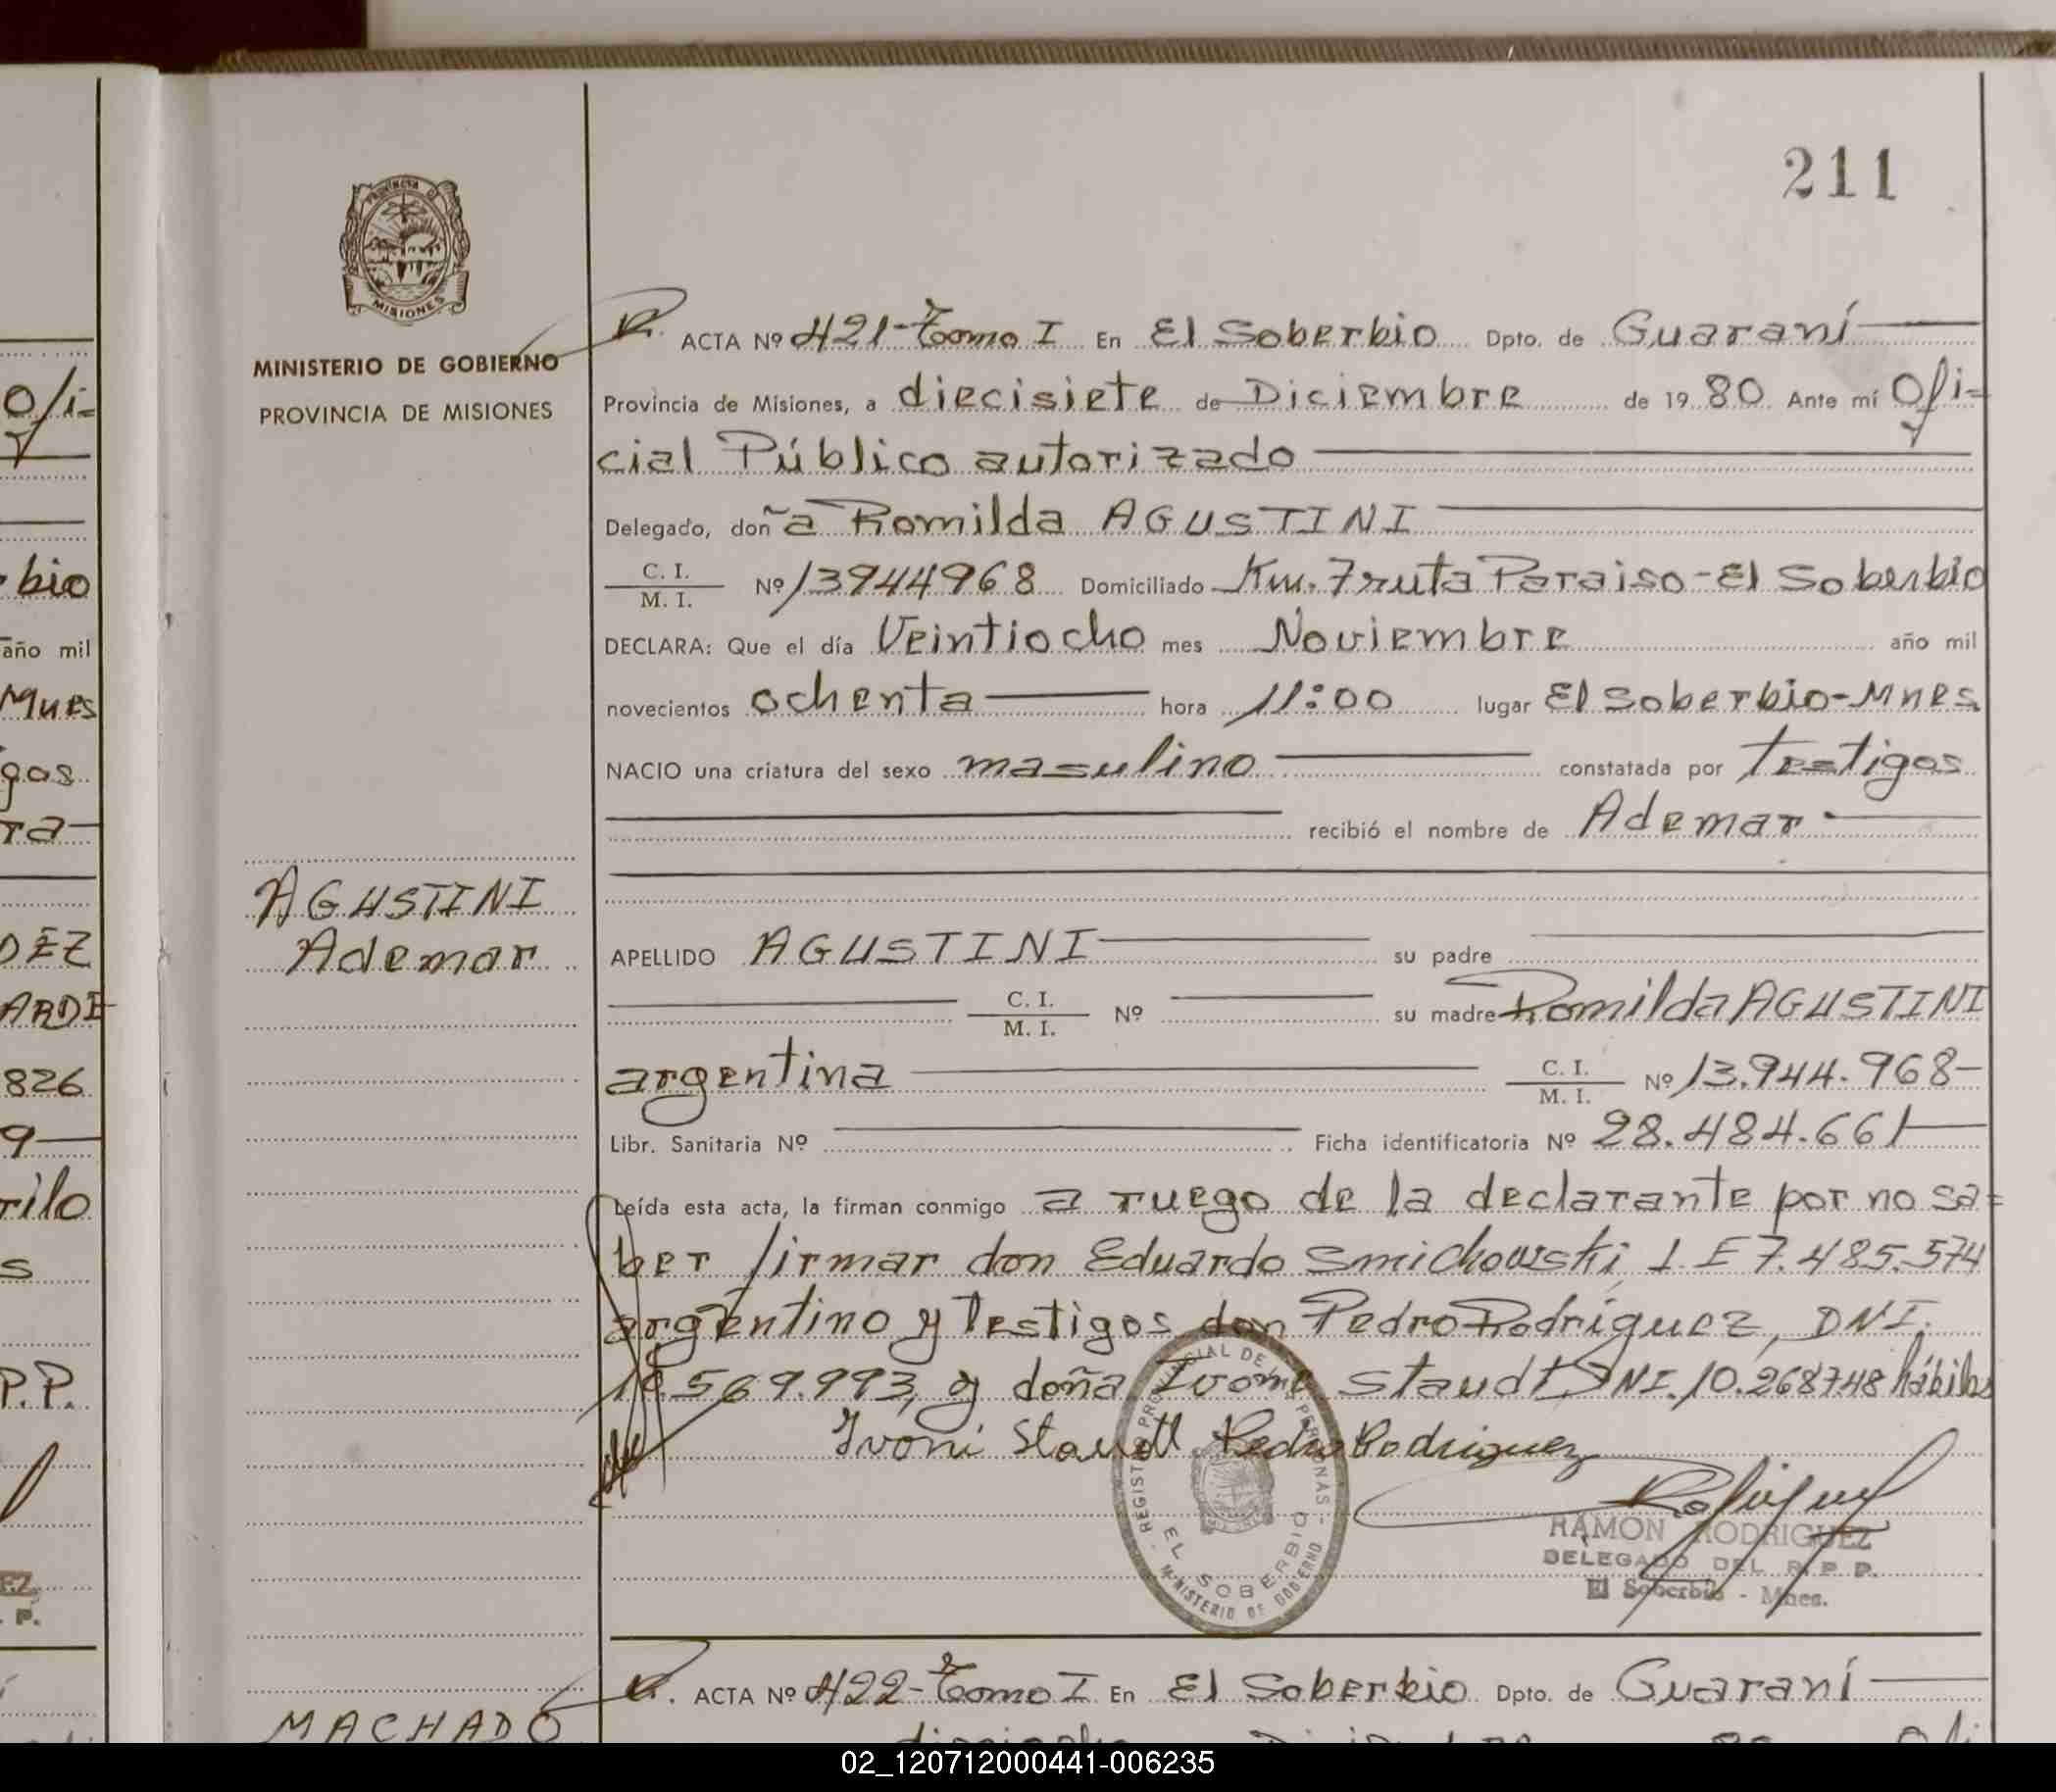 211
PROVINCIA DE
MISIONES
MINISTERIO DE GOBIERNO
PROVINCIA DE MISIONES
ACTA Nº 421-Tomo I En El Soberbio Dpto. de Guaraní
Provincia de Misiones, a diecisiete de Diciembre de 1980 Ante mí Ofi=
cial Público autorizado
Delegado, doña Romilda AGUSTINI
C. I.
M. I. Nº 13944968 Domiciliado Km. Fruta Paraiso-El Soberbio
DECLARA: Que el día Veintiocho mes Noviembre año mil
novecientos ochenta hora 11:00 lugar El Soberbio-Mnes
NACIO una criatura del sexo masulino constatada por testigos
recibió el nombre de Ademar
AGUSTINI
Ademar
APELLIDO AGUSTINI su padre
C. I.
M. I. Nº su madre Romilda AGUSTINI
argentina C. I.
M. I. Nº 13.944.968-
Libr. Sanitaria Nº Ficha identificatoria Nº 28.484.661
Leída esta acta, la firman conmigo a ruego de la declarante por no sa=
ber firmar don Eduardo Smichowski, L.E 7.485.574
argentino y testigos don Pedro Rodríguez, DNI.
18.569.993, y doña Ivone Staudt DNI. 10.268748 hábiles
Ivoni Staudt Pedro Rodriguez
REGISTRO PROVINCIAL DE LAS PERSONAS
EL SOBERBIO
MINISTERIO DE GOBIERNO
RAMON RODRIGUEZ
DELEGADO DEL R. P. P.
El Soberbio - Mnes.
ACTA Nº 422-Tomo I En El Soberbio Dpto. de Guaraní
MACHADO
Ofi=
bio
año mil
Mnes
gos
ra
DEZ
ARDE
826
9
rilo
s
P.P.
EZ
P.
02_120712000441-006235